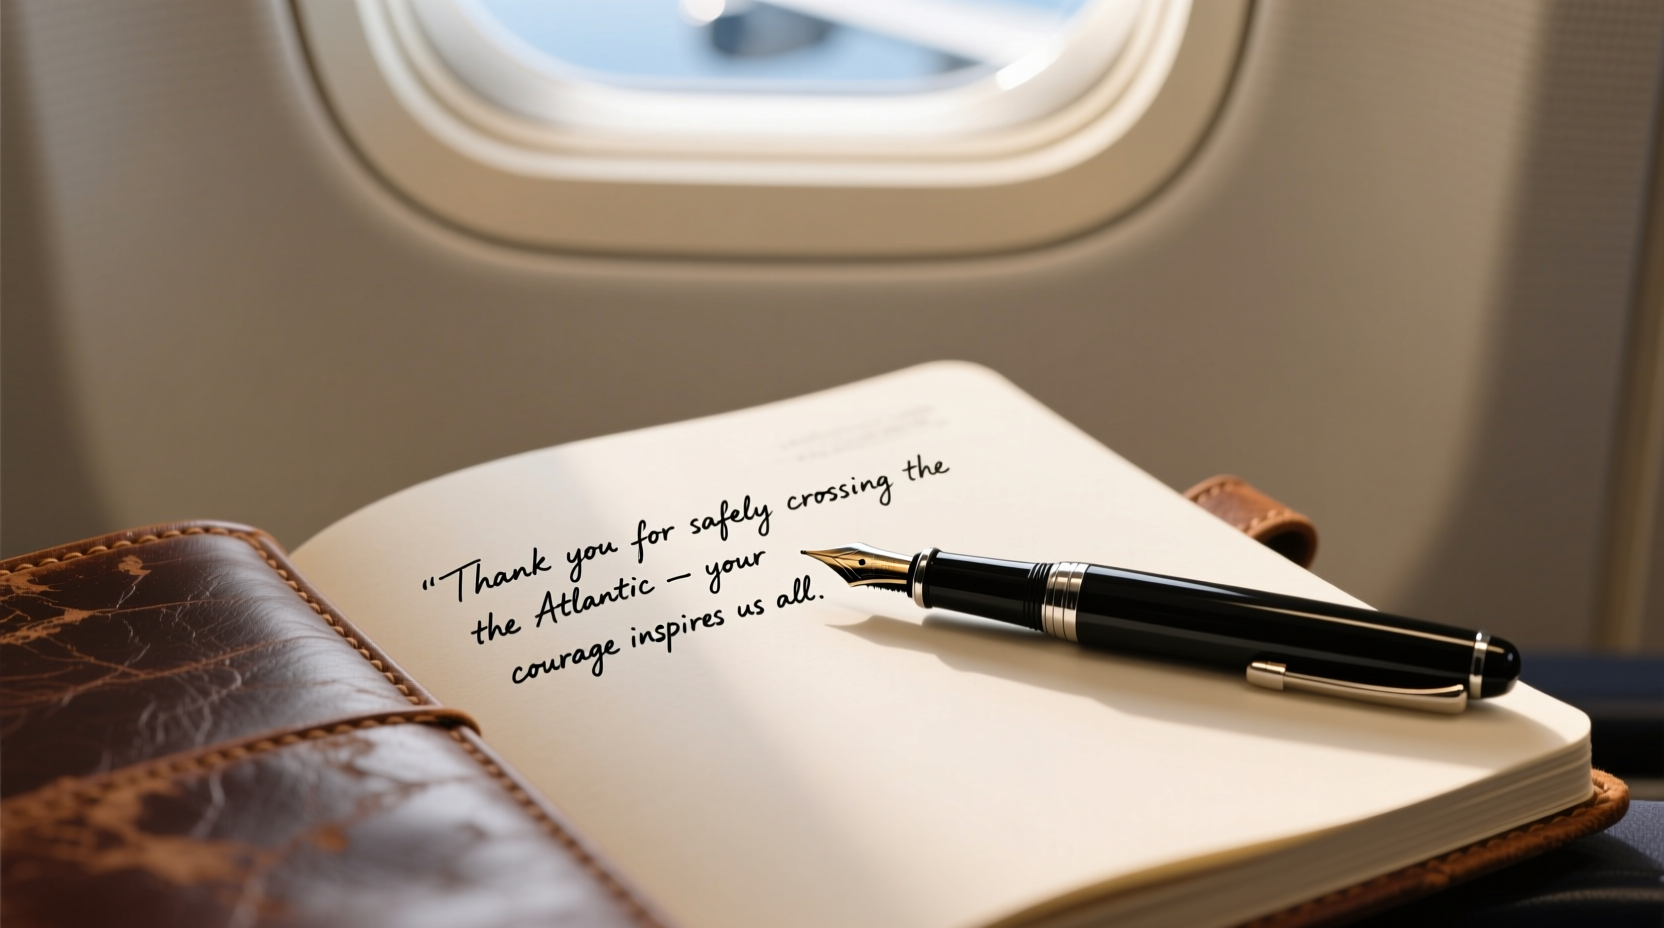 “Thank you for safely crossing the
the Atlantic – your
courage inspires us all.